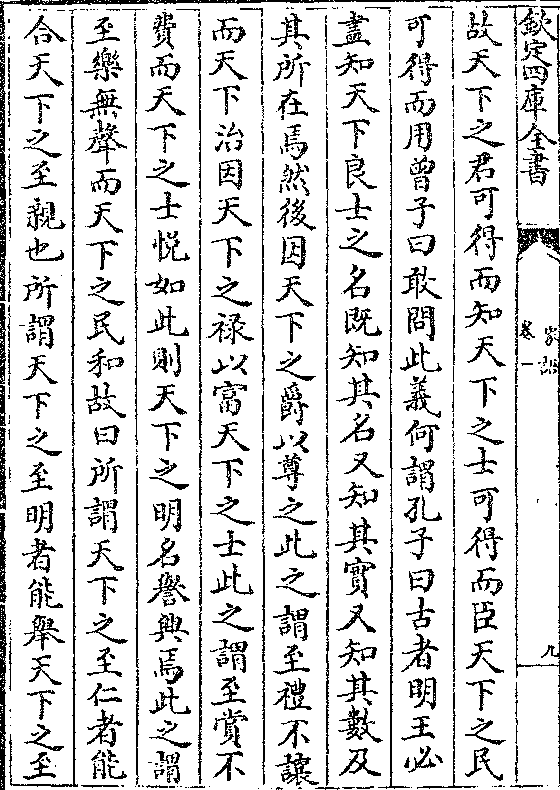 欽定四庫全書
家語
卷一
九
故天下之君可得而知天下之士可得而臣天下之民
可得而用曾子曰敢問此義何謂孔子曰古者明王必
盡知天下良士之名既知其名又知其實又知其數及
其所在焉然後因天下之爵以尊之此之謂至禮不讓
而天下治因天下之禄以富天下之士此之謂至賞不
費而天下之士悦如此則天下之明名譽興焉此之謂
至樂無聲而天下之民和故曰所謂天下之至仁者能
合天下之至親也所謂天下之至明者能舉天下之至